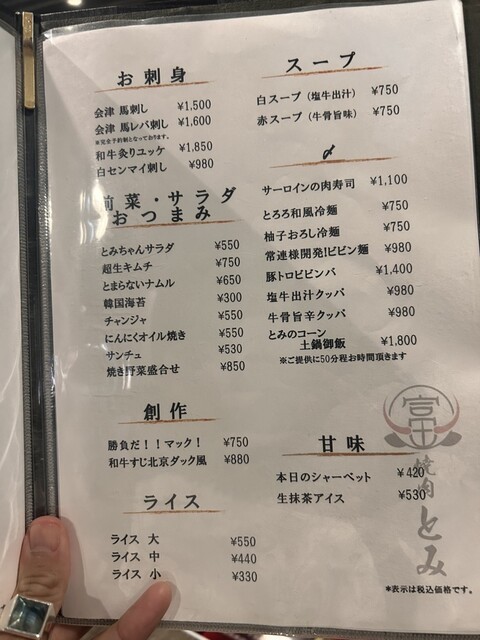 お刺身
会津 馬刺し ¥1,500
会津 馬レバ刺し ¥1,600
※完全予約制となっております。
和牛炙りユッケ ¥1,850
白センマイ刺し ¥980
前菜・サラダ
おつまみ
とみちゃんサラダ ¥550
超生キムチ ¥750
とまらないナムル ¥650
韓国海苔 ¥300
チャンジャ ¥550
にんにくオイル焼き ¥550
サンチュ ¥530
焼き野菜盛合せ ¥850
創作
勝負だ!!マック! ¥750
和牛すじ北京ダック風 ¥880
ライス
ライス 大 ¥550
ライス 中 ¥440
ライス 小 ¥330
スープ
白スープ(塩牛出汁) ¥750
赤スープ(牛骨旨味) ¥750
〆
サーロインの肉寿司 ¥1,100
とろろ和風冷麺 ¥750
柚子おろし冷麺 ¥750
常連様開発!ビビン麺 ¥980
豚トロビビンバ ¥1,400
塩牛出汁クッパ ¥980
牛骨旨辛クッパ ¥980
とみのコーン
土鍋御飯 ¥1,800
※ご提供に50分程お時間頂きます
甘味
本日のシャーベット ¥420
生抹茶アイス ¥530
富
焼肉とみ
*表示は税込価格です。